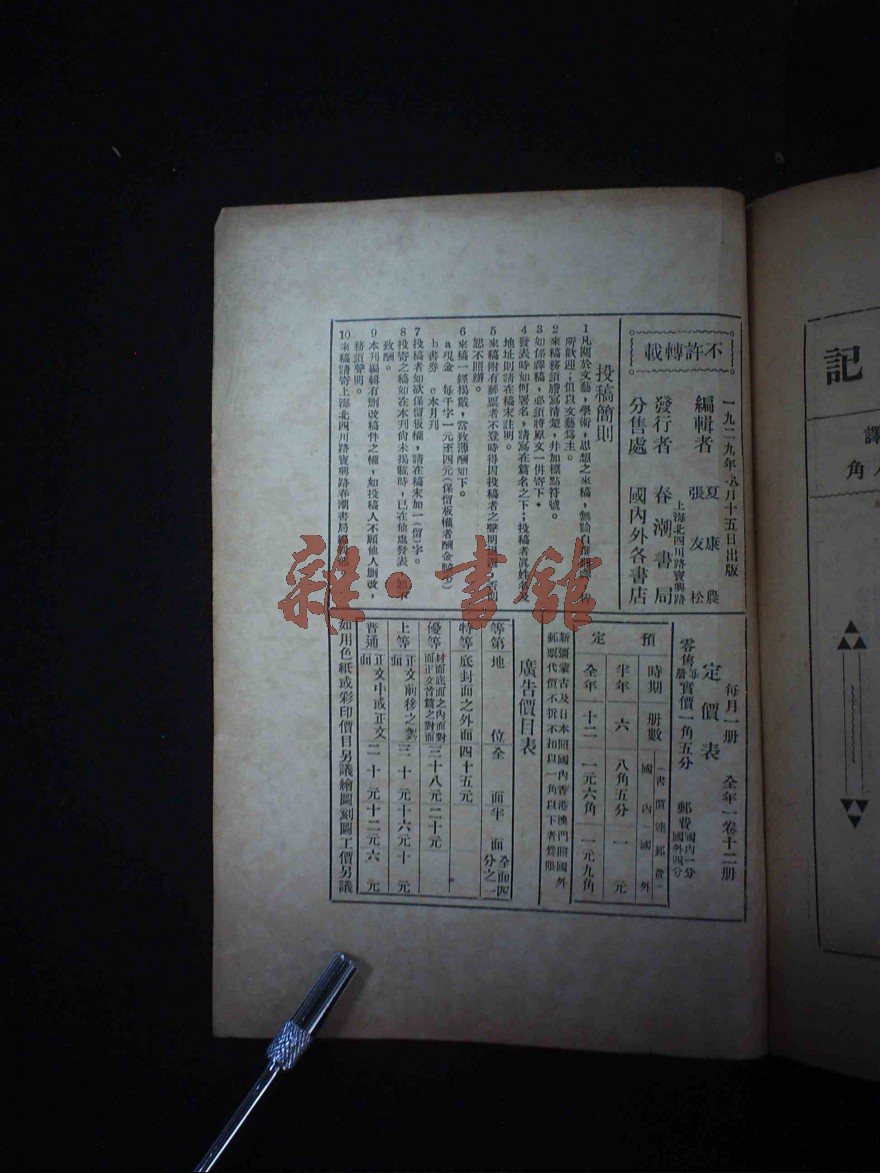 不許轉載
一九二九年八月十五日出版
編輯者 夏康農 張友松
上海北四川路寶興路
發行者 春潮書局
分售處 國內外各書店
投稿簡則
1 凡關於文藝,學術,思想之來稿,無論
所歡迎;但以文藝爲主。
2 來稿務須謄寫清楚,并加標點符號。
3 如係譯稿,必須將原文一併寄下。
4 發表時如何署名,請寫在篇名之下;投稿者眞姓名及
地址則請在稿末註明。
5 來稿附有郵票者不登時得因投稿者之聲明退還,否則
恕不照辦。
6 來稿一經揭載,當致薄酬如下。
a 現金 每千字一元至四元(保留板權者酬金
b 書券 c 本月刊
7 投稿者如欲保留板權,請在稿末加一(留)字。
8 投寄之稿如在本刊尙未揭載時,已在他處發表,恕不
致酬。
9 本刊編輯有删改稿件之權,如投稿人不願他人删改,
務須聲明。
10 來稿請寄上海北四川路寶興路春潮書局
每月一册 全年一卷十二册
定價表
零售每册實價一角五分 郵費國內一分國外四分
預定
時期 册數 (書價連郵費) 國內 國外
半年 六 八角五分 一元
全年 十二 一元六角 一元九角
新疆蒙古及日本照國內香港澳門照國外
郵票代價不折不扣以一角以下者爲限
廣告價目表
等第 地位 全面 半面 全面四分之一
特等 底封面之外面 四十五元
優等 封面底面之內面對面正文首篇之對面 三十八元 二十元
上等 正文前後之對面 三十元 十六元 十元
普通 正文中或正文面 二十元 十二元 六元
如用色紙或彩印價目另議繪圖刻圖工價另議
記
譯
角
雜·書館